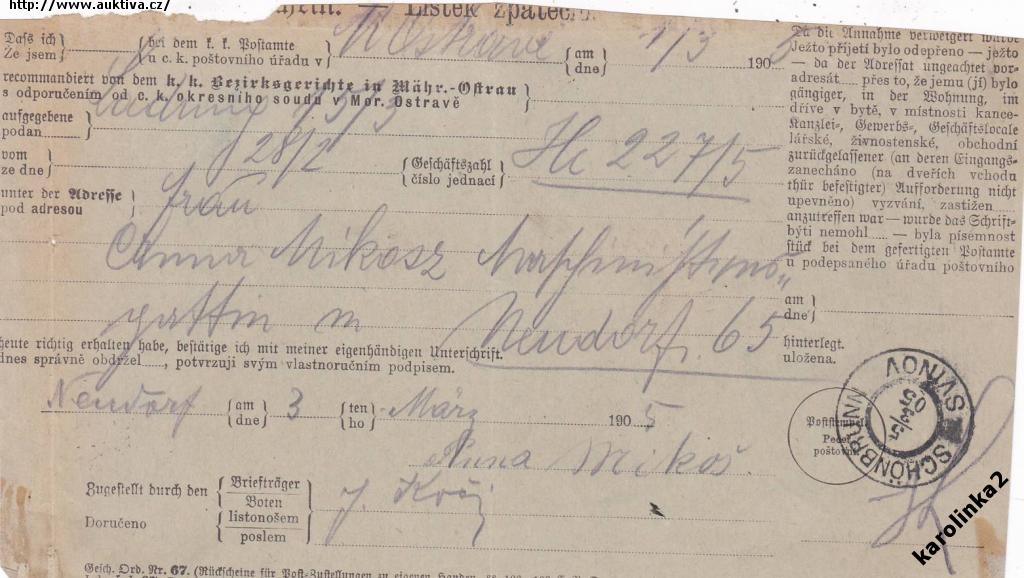 http://www.auktiva.cz/
— Lístek zpáteč
Daſs ich
Že jsem
bei dem k. k. Poſtamte
u c. k. poštovního úřadu v
M Ostrave
am
dne
1/3
190 5
recommandiert von dem k. k. Bezirksgerichte in Mähr.-Oſtrau
s odporučením od c. k. okresního soudu v Mor. Ostravě
aufgegebene
podan
vom
ze dne
28/2
Geſchäftszahl
číslo jednací
Hc 227/5
unter der Adreſſe
pod adresou
Frau
Anna Mikosz Maschinistens„
gattin in Neudorf. 65
heute richtig erhalten habe, beſtätige ich mit meiner eigenhändigen Unterſchrift.
dnes správně obdržel, potvrzuji svým vlastnoručním podpisem.
Neudorf
am
dne
3
ten
ho
März
190 5
Anna Mikoš.
Zugeſtellt durch den
Doručeno
Briefträger
Boten
listonošem
poslem
J. Kočí
Geſch. Ord. Nr. 67. (Rückſcheine für Poſt-Zuſtellungen zu eigenen Handen,
Da die Annahme verweigert wurde
Ježto přijetí bylo odepřeno — ježto
— da der Adreſſat ungeachtet vor-
adresát přes to, že jemu (jí) bylo
gängiger, in der Wohnung, im
dříve v bytě, v místnosti kance-
Kanzlei-, Gewerbs-, Geſchäftslocale
lářské, živnostenské, obchodní
zurückgelaſſener (an deren Eingangs-
zanecháno (na dveřích vchodu
thür befeſtigter) Aufforderung nicht
upevněno) vyzvání, zastižen
anzutreffen war — wurde das Schrift-
býti nemohl — byla písemnost
ſtück bei dem gefertigten Poſtamte
u podepsaného úřadu poštovního
am
dne
hinterlegt.
uložena.
Poſtſtempel.
Pečeť
poštovní
SVINOV
SCHÖNBRUNN
karolinka2